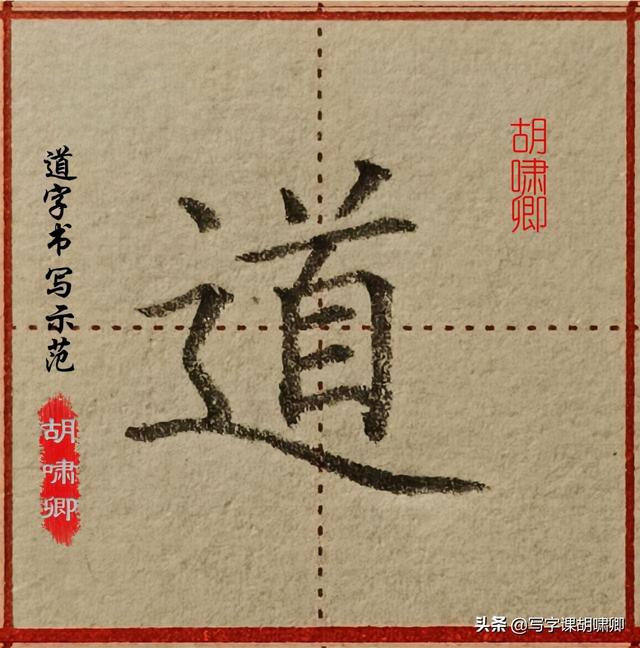 道
道字书写示范
胡啸卿
胡啸卿
头条 @写字课胡啸卿